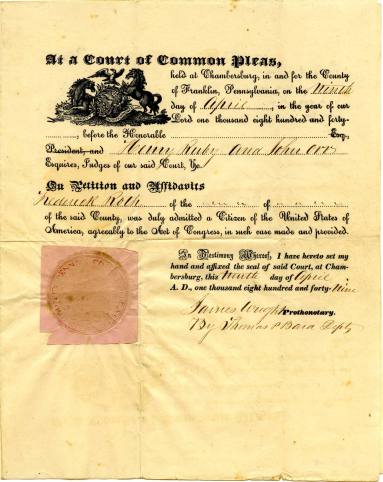 At a Court of Common Pleas,
held at Chambersburg, in and for the County
of Franklin, Pennsylvania, on the Ninth
day of April, in the year of our
Lord one thousand eight hundred and forty-
, before the Honorable Esq.,
President, and Henry Ruby and John Orr
Esquires, Judges of our said Court, &c.
On Petition and Affidavits
Frederick Roth of the of
of the said County, was duly admitted a Citizen of the United States of
America, agreeably to the Act of Congress, in such case made and provided.
In Testimony Whereof, I have hereto set my
hand and affixed the seal of said Court, at Cham-
bersburg, this Ninth day of April
A. D., one thousand eight hundred and forty-Nine
James Wright Prothonotary.
By Thomas P Bard Depty